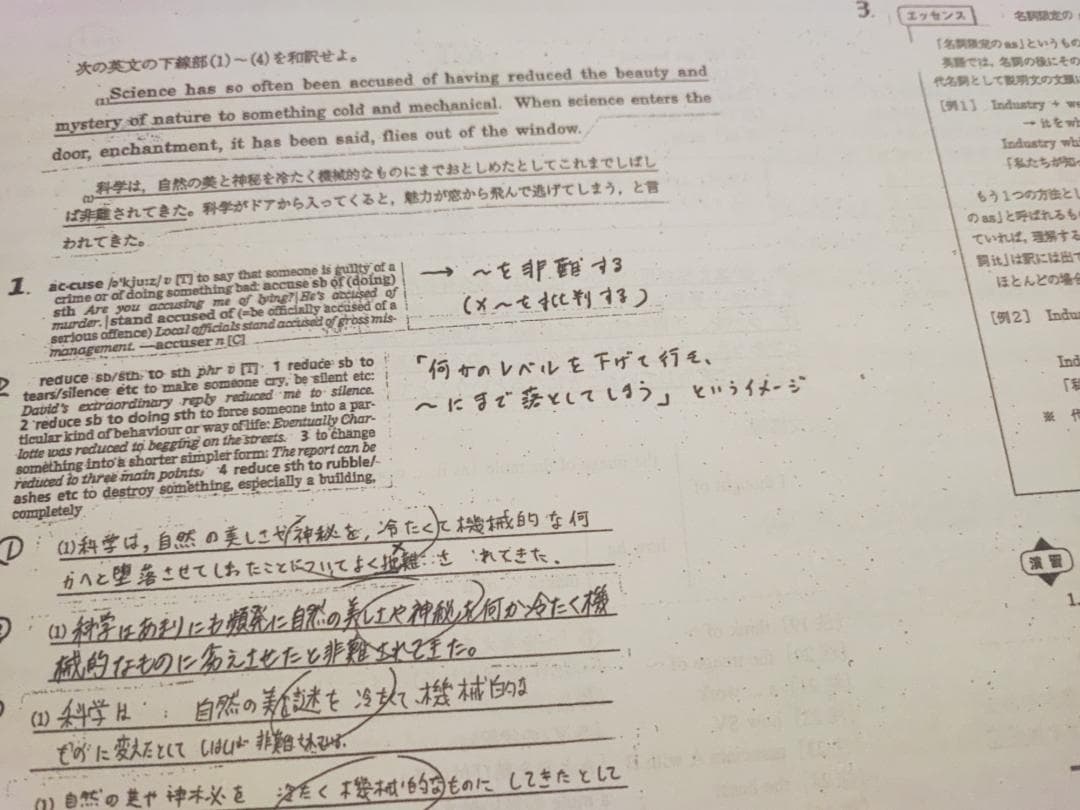 次の英文の下線部(1)～(4)を和訳せよ。
(1)Science has so often been accused of having reduced the beauty and
mystery of nature to something cold and mechanical. When science enters the
door, enchantment, it has been said, flies out of the window.
(1)科学は，自然の美と神秘を冷たく機械的なものにまでおとしめたとしてこれまでしばし
ば非難されてきた。科学がドアから入ってくると，魅力が窓から飛んで逃げてしまう，と言
われてきた。
1. ac·cuse /ə'kjuːz/ v [T] to say that someone is guilty of a
crime or of doing something bad: accuse sb of (doing)
sth Are you accusing me of lying?|He's accused of
murder.|stand accused of (=be officially accused of a
serious offence) Local officials stand accused of gross mis-
management. —accuser n [C]
→ ～を非難する
(× ～を批判する)
2 reduce sb/sth to sth phr v [T] 1 reduce sb to
tears/silence etc to make someone cry, be silent etc:
David's extraordinary reply reduced me to silence.
2 reduce sb to doing sth to force someone into a par-
ticular kind of behaviour or way of life: Eventually Char-
lotte was reduced to begging on the streets. 3 to change
something into a shorter simpler form: The report can be
reduced to three main points. 4 reduce sth to rubble/
ashes etc to destroy something, especially a building,
completely
「何かのレベルを下げて行き、
～にまで落としてしまう」というイメージ
① (1)科学は，自然の美しさや神秘を，冷たくて機械的な何
かへと堕落させてしまったことについてよく批難されてきた．
(1)科学はあまりにも頻発に自然の美しさや神秘を何か冷たく機
械的なものに変えさせたと非難されてきた。
(1)科学は 自然の美と謎を冷たくて、機械的な
ものに変えたとしてしばしば非難されている.
(1)自然の美や神秘を 冷たく機械的なものに してきたとして
3. エッセンス 名詞限定の
「名詞限定のas」というもの
英語では，名詞の後にその
代名詞として説明文の文頭に
[例1] Industry + we
→ itをwh
Industry whi
「私たちが知
もう1つの方法とし
のas」と呼ばれるもの
ていれば，理解する
詞itは訳には出て
ほとんどの場合
[例2] Indus
Ind
「私
※ 代
演習
1.